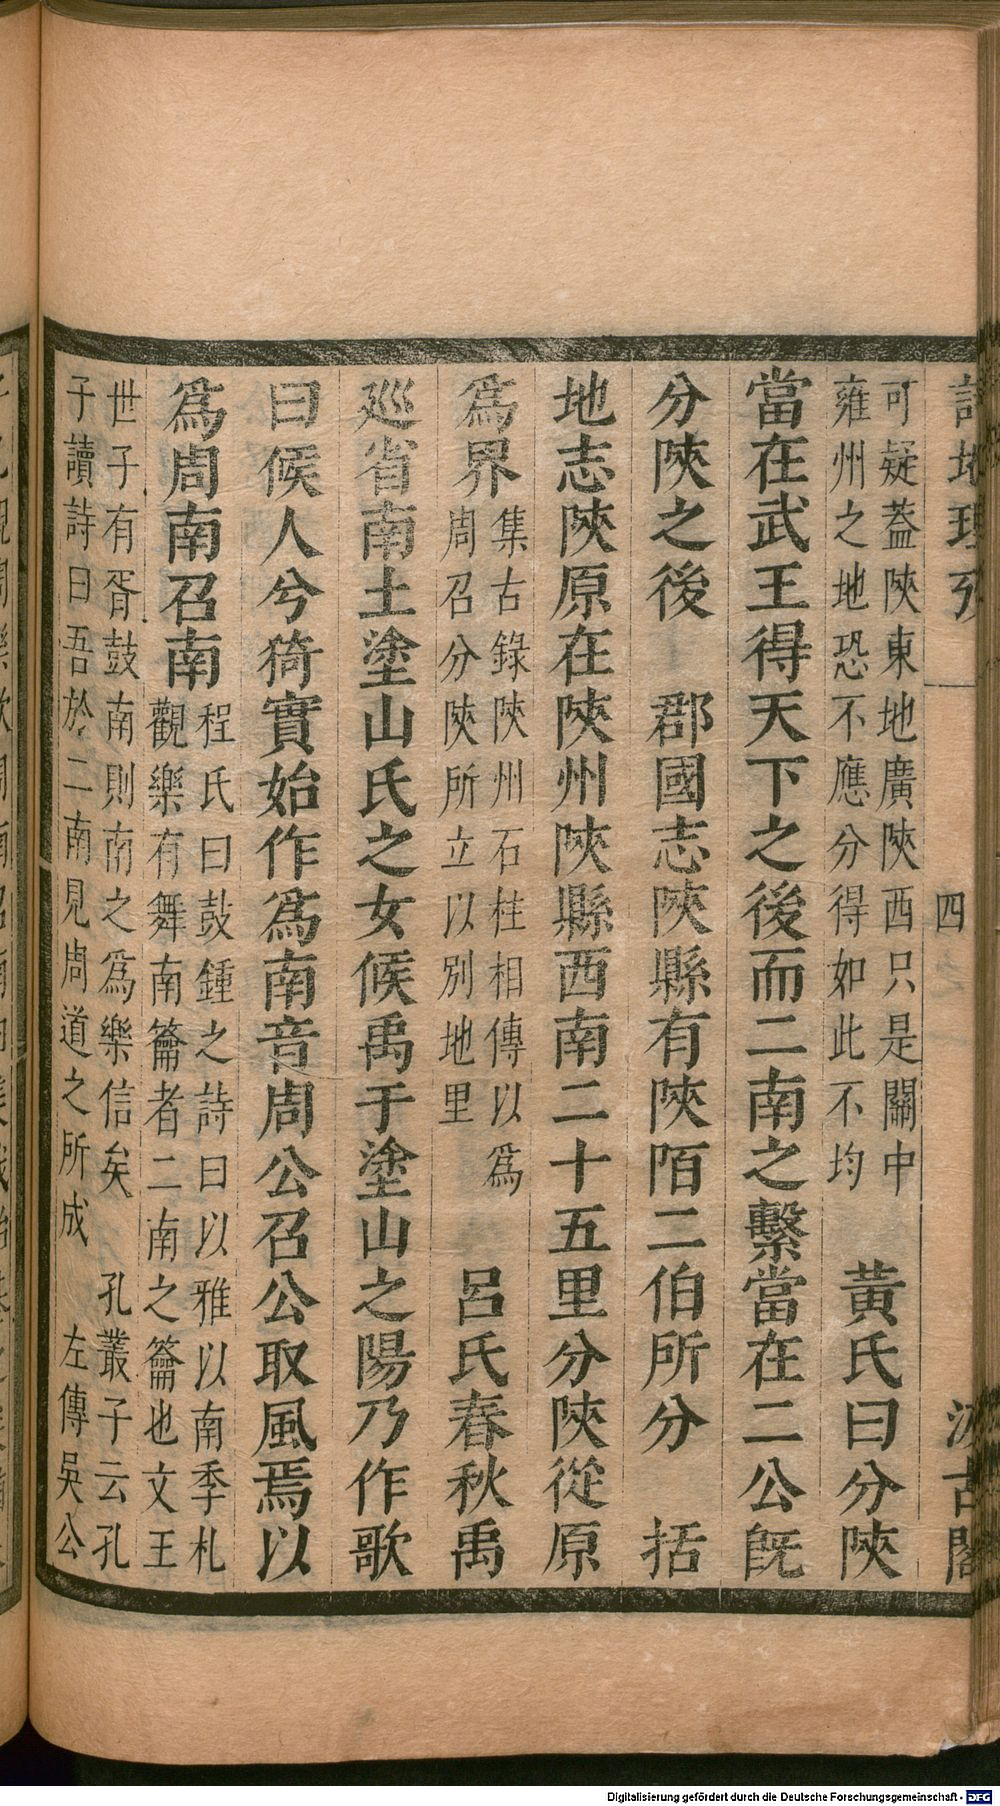 詩地理攷 四 汲古閣
可疑蓋陝東地廣陝西只是關中
雍州之地恐不應分得如此不均
黃氏曰分陝
當在武王得天下之後而二南之繫當在二公旣
分陝之後 郡國志陝縣有陝陌二伯所分 括
地志陝原在陝州陝縣西南二十五里分陝從原
爲界
集古錄陝州石柱相傳以爲
周召分陝所立以別地里
呂氏春秋禹
巡省南土塗山氏之女候禹于塗山之陽乃作歌
曰候人兮猗實始作爲南音周公召公取風焉以
爲周南召南
程氏曰鼓鍾之詩曰以雅以南季札
觀樂有舞南籥者二南之籥也文王
世子有胥鼓南則南之爲樂信矣 孔叢子云孔
子讀詩曰吾於二南見周道之所成 左傳吳公
Digitalisierung gefördert durch die Deutsche Forschungsgemeinschaft - DFG